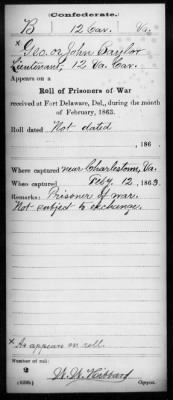 Confederate.
B 12 Cav. Va.
× Geo. or John Taylor
Lieutenant, 12 Va. Cav.
Appears on a
Roll of Prisoners of War
received at Fort Delaware, Del., during the month
of February, 1863.
Roll dated Not dated
, 186 .
Where captured near Charlestown, Va.
When captured Feby. 12, 1863.
Remarks: Prisoner of war.
Not subject to exchange.
× As appears on roll.
Number of roll:
2
W. W. Hibbard
Copyist.